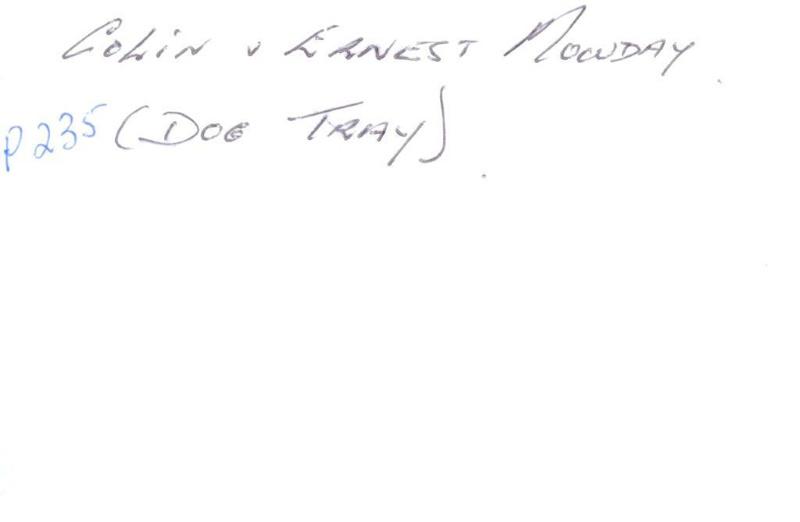 COLIN & ERNEST MOWDAY
P235 (DOG TRAY)